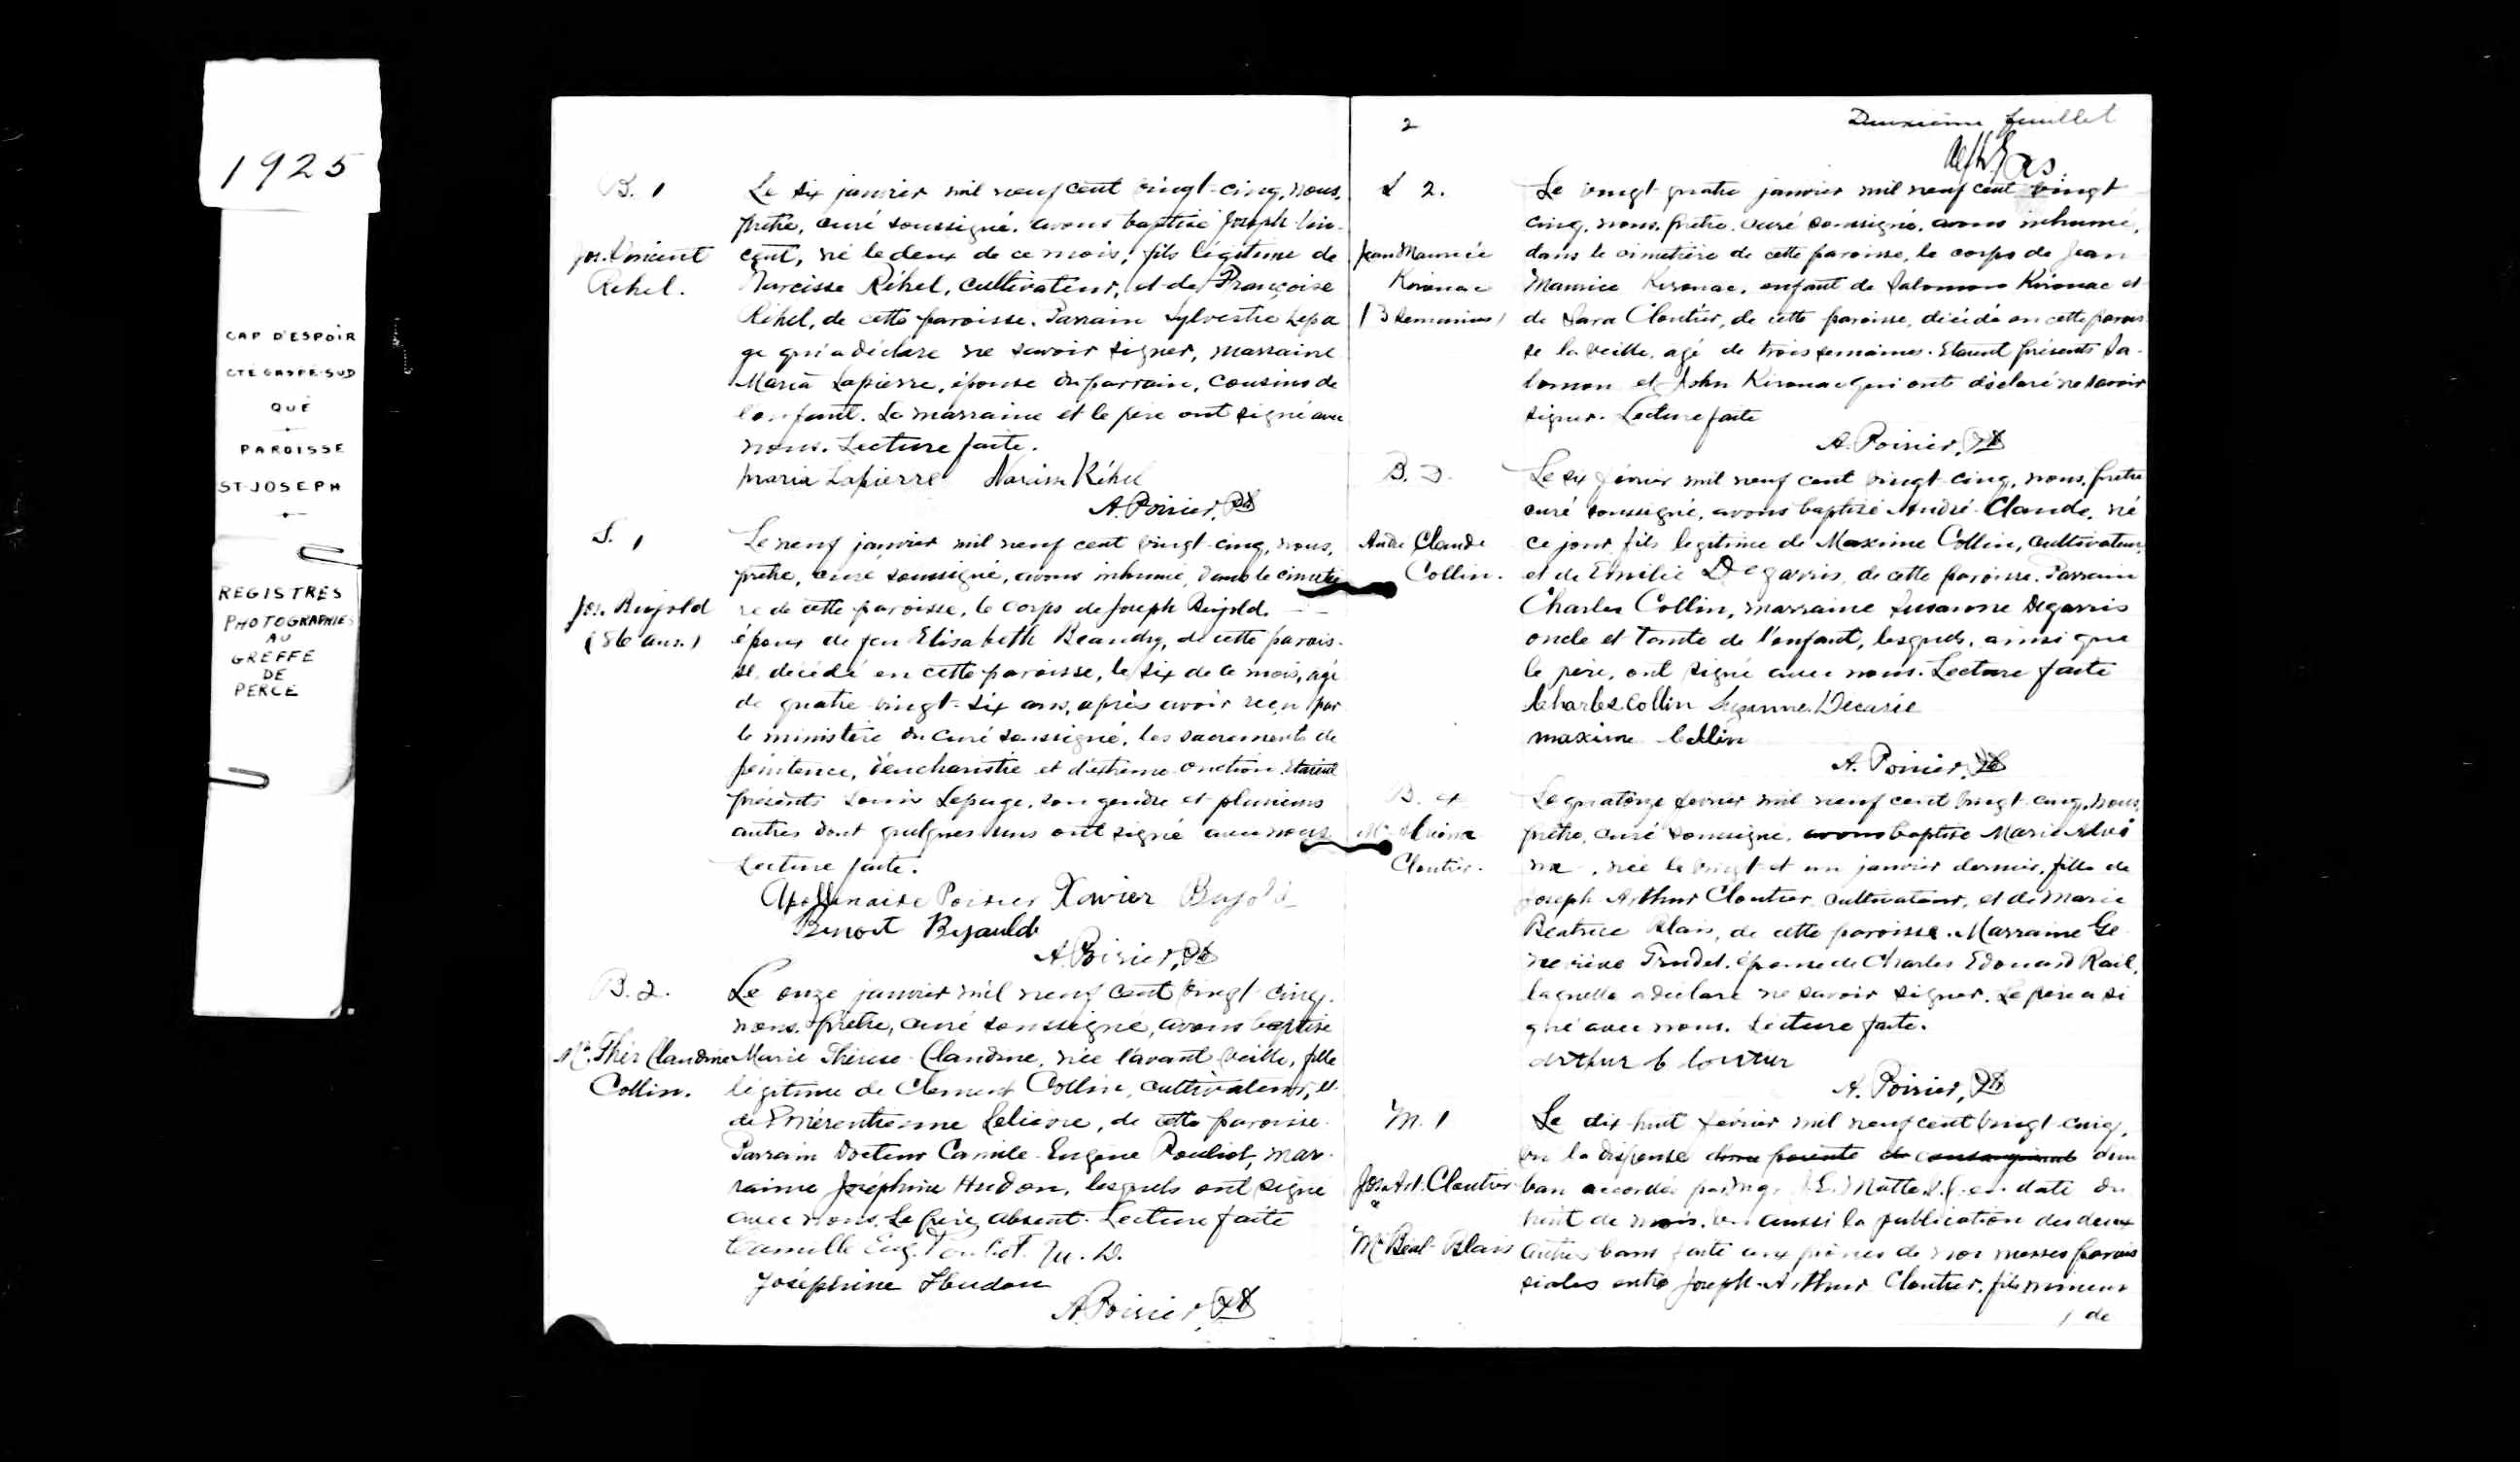 1925
CAP D'ESPOIR
CTÉ GASPÉ-SUD
QUÉ
PAROISSE
ST-JOSEPH
REGISTRES
PHOTOGRAPHIÉS
AU
GREFFE
DE
PERCÉ
B. 1
Jos. Vincent
Réhel.
Le six janvier mil neuf cent vingt-cinq, nous,
prêtre, curé soussigné, avons baptisé Joseph Vin-
cent, né le deux de ce mois, fils légitime de
Narcisse Réhel, cultivateur, et de Françoise
Réhel, de cette paroisse. Parrain Sylvestre Lepa
ge qui a déclaré ne savoir signer, marraine
Maria Lapierre, épouse du parrain, cousins de
l'enfant. La marraine et le père ont signé avec
nous. Lecture faite.
Maria Lapierre Narcisse Réhel
A. Poirier, Ptr
S. 1
Jos. Bujold
(86 ans.)
Le neuf janvier mil neuf cent vingt-cinq, nous,
prêtre, curé soussigné, avons inhumé, dans le cimetiè
re de cette paroisse, le corps de Joseph Bujold.
époux de feu Elisabeth Beaudry, de cette parois-
se, décédé en cette paroisse, le six de ce mois, agé
de quatre-vingt-six ans, après avoir reçu par
le ministère du curé soussigné, les sacrements de
pénitence, d'eucharistie et d'extrême-onction. Etaient
présents Louis Lepage, son gendre et plusieurs
autres dont quelques uns ont signé avec nous
Lecture faite.
Apollinaire Poirier Xavier Bujold
Benoit Bujauld
A. Poirier, Ptr
B. 2.
Mie Thér Claudine
Collin.
Le onze janvier mil neuf cent vingt-cinq,
nous, prêtre, curé soussigné, avons baptisé
Marie Thérèse Claudine, née l'avant veille, fille
légitime de Clément Collin, cultivateur, et
de Emérentienne Lelièvre, de cette paroisse.
Parrain Docteur Camile-Eugène Pouliot, mar-
raine Joséphine Hudon, lesquels ont signé
avec nous. Le père absent. Lecture faite
Camille Eug. Pouliot M.D.
Joséphine Hudon
A. Poirier, Ptr
2
Deuxième feuillet
S 2.
Jean Maurice
Kirouac
(3 semaines)
Le vingt quatre janvier mil neuf cent vingt
cinq, nous, prêtre, curé soussigné, avons inhumé,
dans le cimetière de cette paroisse, le corps de Jean
Maurice Kirouac, enfant de Salomon Kirouac et
de Sara Cloutier, de cette paroisse, décédé en cette parois
se la veille, agé de trois semaines. Etaient présents Sa-
lomon et John Kirouac qui ont déclaré ne savoir
signer. Lecture faite
A. Poirier, Ptr
B. 3.
André Claude
Collin.
Le six février mil neuf cent vingt-cinq, nous, prêtre
curé soussigné, avons baptisé André-Claude, né
ce jour fils legitime de Maxime Collin, cultivateur,
et de Emilie Degarris, de cette paroisse. Parrain
Charles Collin, marraine Susanne Degarris
oncle et tante de l'enfant, lesquels, ainsi que
le père, ont signé avec nous. Lecture faite
Charles Collin Suzanne Decarie
maxime Collin
A. Poirier, Ptr
B. 4
Mie Alvina
Cloutier.
Le quatorze février mil neuf cent vingt-cinq, nous,
prêtre, curé soussigné, avons baptisé Marie Alvi
na, née le vingt et un janvier dernier, fille de
Joseph Arthur Cloutier, cultivateur, et de Marie
Beatrice Blais, de cette paroisse. Marraine Ge
neviève Trudel, épouse de Charles Edouard Rail,
laquelle a déclaré ne savoir signer. Le père a si
gné avec nous. Lecture faite.
Arthur Cloutier
A. Poirier, Ptr
M. 1
Jos. Art. Cloutier
&
Mie Béat. Blais
Le dix huit février mil neuf cent vingt-cinq,
vu la dispense d'une parenté de consanguinité d'un
ban accordée par Mgr J.E. Matte, en date du
huit de mois, vu aussi la publication des deux
autres bans faite aux prônes de nos messes parois
siales entre Joseph-Arthur Cloutier, fils mineur
/ de